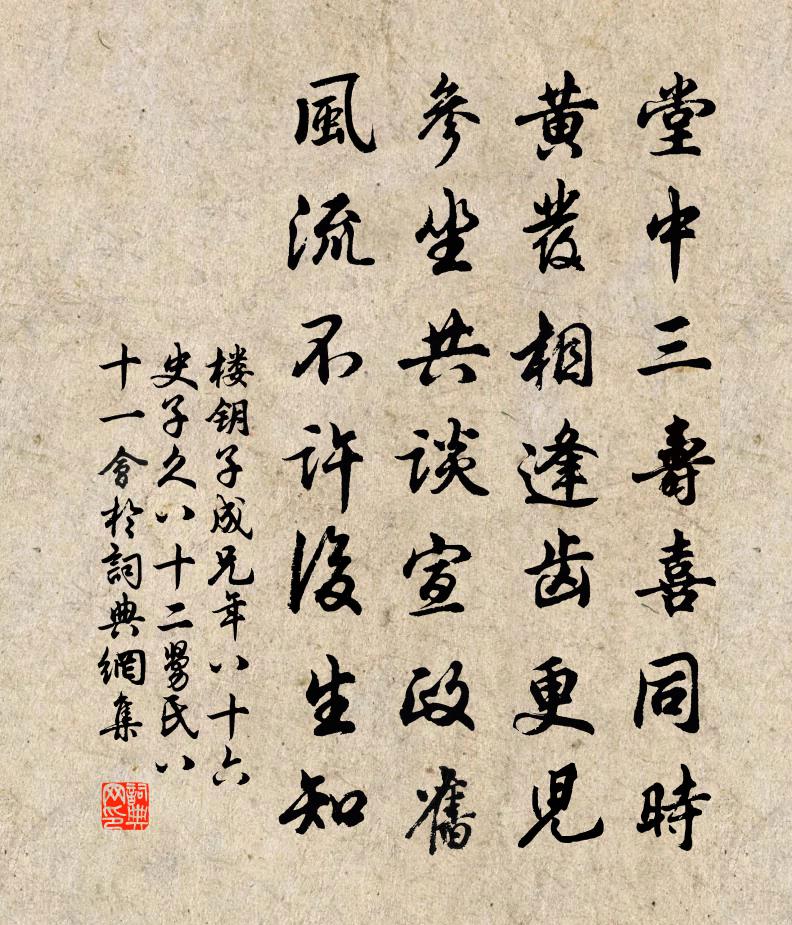 堂中三壽喜同時
黃發相逢齿更児
參坐共談宣政舊
風流不許後生知
楼钥子成兄年八十六
史子久八十二舅氏八
十一會於詞典網集
詞典网印